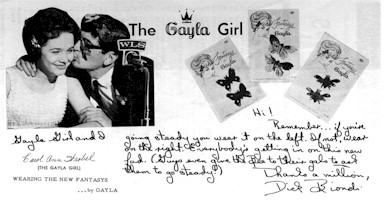 The Gayla Girl
WLS
Fantasys
Gayla
Gayla Girl and I
Carol Ann
(THE GAYLA GIRL)
WEARING THE NEW FANTASYS
...by GAYLA
Hi!
Remember...if you're
going steady you wear it on the left. If not, wear
on the right. Everybody's getting in on this new
fad. (Guys even give the pins to their gals to ask
them to go steady!)
Thanks a million,
Dick Biondi